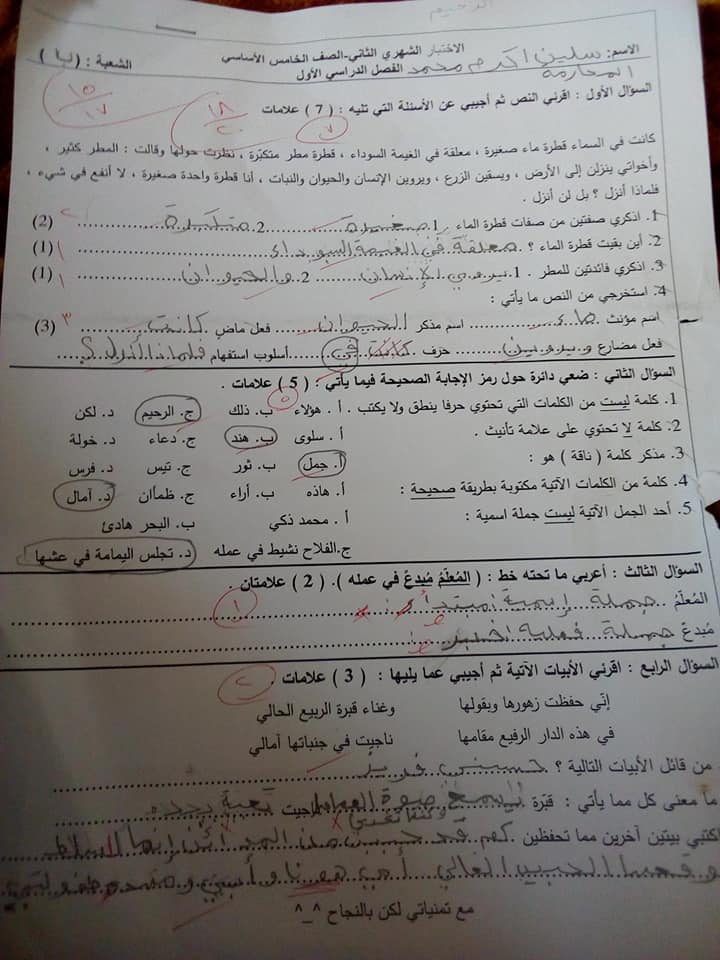 الاختبار الشهري الثاني-الصف الخامس الأساسي
الاسم: سلين اكرم محمد المحارمة الفصل الدراسي الأول الشعبة : ( ب )
١٥/١٧ ١٨/٢٠
السؤال الأول : اقرئي النص ثم أجيبي عن الأسئلة التي تليه : ( 7 ) علامات ٧
كانت في السماء قطرة ماء صغيرة ، معلقة في الغيمة السوداء ، قطرة مطر متكبّرة ، نظرت حولها وقالت : المطر كثير ،
وأخواتي ينزلن إلى الأرض ، ويسقين الزرع ، ويروين الإنسان والحيوان والنبات ، أنا قطرة واحدة صغيرة ، لا أنفع في شيء ،
فلماذا أنزل ؟ بل لن أنزل .
1. اذكري صفتين من صفات قطرة الماء .1 صغيرة .2 متكبرة (2) ٢
2. أين بقيت قطرة الماء ؟ معلقة في الغيمة السوداء (1) ١
3. اذكري فائدتين للمطر . 1. يروي الإنسان 2. والحيوان (1) ١
4. استخرجي من النص ما يأتي :
اسم مؤنث ماء اسم مذكر الحيوان فعل ماضٍ كانت (3) ٣
فعل مضارع ويروين حرف في أسلوب استفهام فلماذا أنزل؟
السؤال الثاني : ضعي دائرة حول رمز الإجابة الصحيحة فيما يأتي : ( 5 ) علامات . ٥
1. كلمة ليست من الكلمات التي تحتوي حرفا ينطق ولا يكتب . أ . هؤلاء ب. ذلك ج. الرحيم د. لكن
2. كلمة لا تحتوي على علامة تأنيث . أ . سلوى ب. هند ج. دعاء د. خولة
3. مذكر كلمة ( ناقة ) هو : أ. جمل ب. ثور ج. تيس د. فرس
4. كلمة من الكلمات الآتية مكتوبة بطريقة صحيحة : أ. هاذه ب. أراء ج. ظمأان د. آمال
5. أحد الجمل الآتية ليست جملة اسمية : أ . محمد ذكي ب. البحر هادئ
ج.الفلاح نشيط في عمله د. تجلس اليمامة في عشها
السؤال الثالث : أعربي ما تحته خط : ( المُعلّمُ مُبدعٌ في عمله ). ( 2 ) علامتان . ١
المُعلّمُ جملة إسمية امبتدأ
مُبدعٌ جملة فعلية اخبر
السؤال الرابع : اقرئي الأبيات الآتية ثم أجيبي عما يليها : ( 3 ) علامات . ٢
إنّي حفظت زهورها وبقولها وغناء قبرة الربيع الحالي
في هذه الدار الرفيع مقامها ناجيت في جنباتها آمالي
من قائل الأبيات التالية ؟ حسني فريز
ما معنى كل مما يأتي : قبّرة ناجيت
اكتبي بيتين آخرين مما تحفظين .
مع تمنياتي لكن بالنجاح ^_^